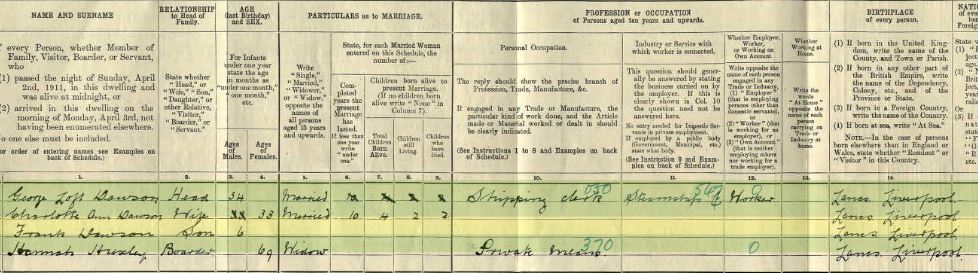 NAME AND SURNAME
RELATIONSHIP to Head of Family.
AGE (last Birthday) and SEX.
PARTICULARS as to MARRIAGE.
PROFESSION or OCCUPATION
of Persons aged ten years and upwards.
BIRTHPLACE of every person.
every Person, whether Member of
Family, Visitor, Boarder, or Servant,
who
(1) passed the night of Sunday, April
2nd, 1911, in this dwelling and
was alive at midnight, or
(2) arrived in this dwelling on the
morning of Monday, April 3rd, not
having been enumerated elsewhere.
one else must be included.
order of entering names see Examples on
back of Schedule.)
State whether
"Head," or
"Wife," "Son,"
"Daughter," or
other Relative,
"Visitor,"
"Boarder," or
"Servant."
For Infants
under one
year state
the age
in months as
"under one
month," "one
month,"
etc.
Ages of Males.
Ages of Females.
Write
"Single,"
"Married,"
"Widower,"
or "Widow,"
opposite the
names of
all persons
aged 15 years
and upwards.
State, for each Married Woman
entered on this Schedule, the
number of:—
Completed
years the
present
Marriage
has
lasted.
If less than
one year
write
"under
one."
Children born alive to
present Marriage.
(If no children born
alive write "None" in
Column 7).
Total
Children
Born
Alive.
Children
still
Living.
Children
who
have
Died.
Personal Occupation.
The reply should show the precise branch of
Profession, Trade, Manufacture, &c.
If engaged in any Trade or Manufacture, the
particular kind of work done, and the Article
made or Material worked or dealt in should
be clearly indicated.
(See Instructions 1 to 8 and Examples on back
of Schedule.)
Industry or Service with
which worker is connected.
This question should generally
be answered by stating the
business carried on by the
employer. If this is clearly
shown in Col. 10 the question
need not be answered here.
No entry needed for Domestic Servants
in private employment.
If employed by a public body
(Government, Municipal, etc.)
state what body.
(See Instruction 9 and Examples
on back of Schedule.)
Whether Employer,
Worker,
or Working on
Own Account.
Write opposite the name
of each person engaged
in any Trade or Industry,
(1) "Employer"
(that is employing
persons other than
domestic servants),
or
(2) "Worker" (that
is working for an
employer), or
(3) "Own Account"
(that is neither
employing others
nor working for a
trade employer).
Whether
Working at
Home.
Write the
words
"At Home"
opposite the
name of each
person
carrying on
Trade or
Industry
at Home.
(1) If born in the United Kingdom,
write the name of the
County, and Town or Parish.
(2) If born in any other part of
the British Empire, write
the name of the Dependency,
Colony, etc., and of the
Province or State.
(3) If born in a Foreign Country,
write the name of the Country.
(4) If born at sea, write "At Sea."
NOTE.—In the case of persons
born elsewhere than in England or
Wales, state whether "Resident" or
"Visitor" in this Country.
1. 2. 3. 4. 5. 6. 7. 8. 9. 10. 11. 12. 13. 14.
George Loft Dawson Head 34 Married Shipping clerk 030 Steamship Worker Lancs Liverpool
Charlotte Ann Dawson Wife 33 Married 10 4 2 2 Lancs Liverpool
Frank Dawson Son 6 Lancs Liverpool
Hannah Boarder 69 Widow Private Means 370 0 Lancs Liverpool